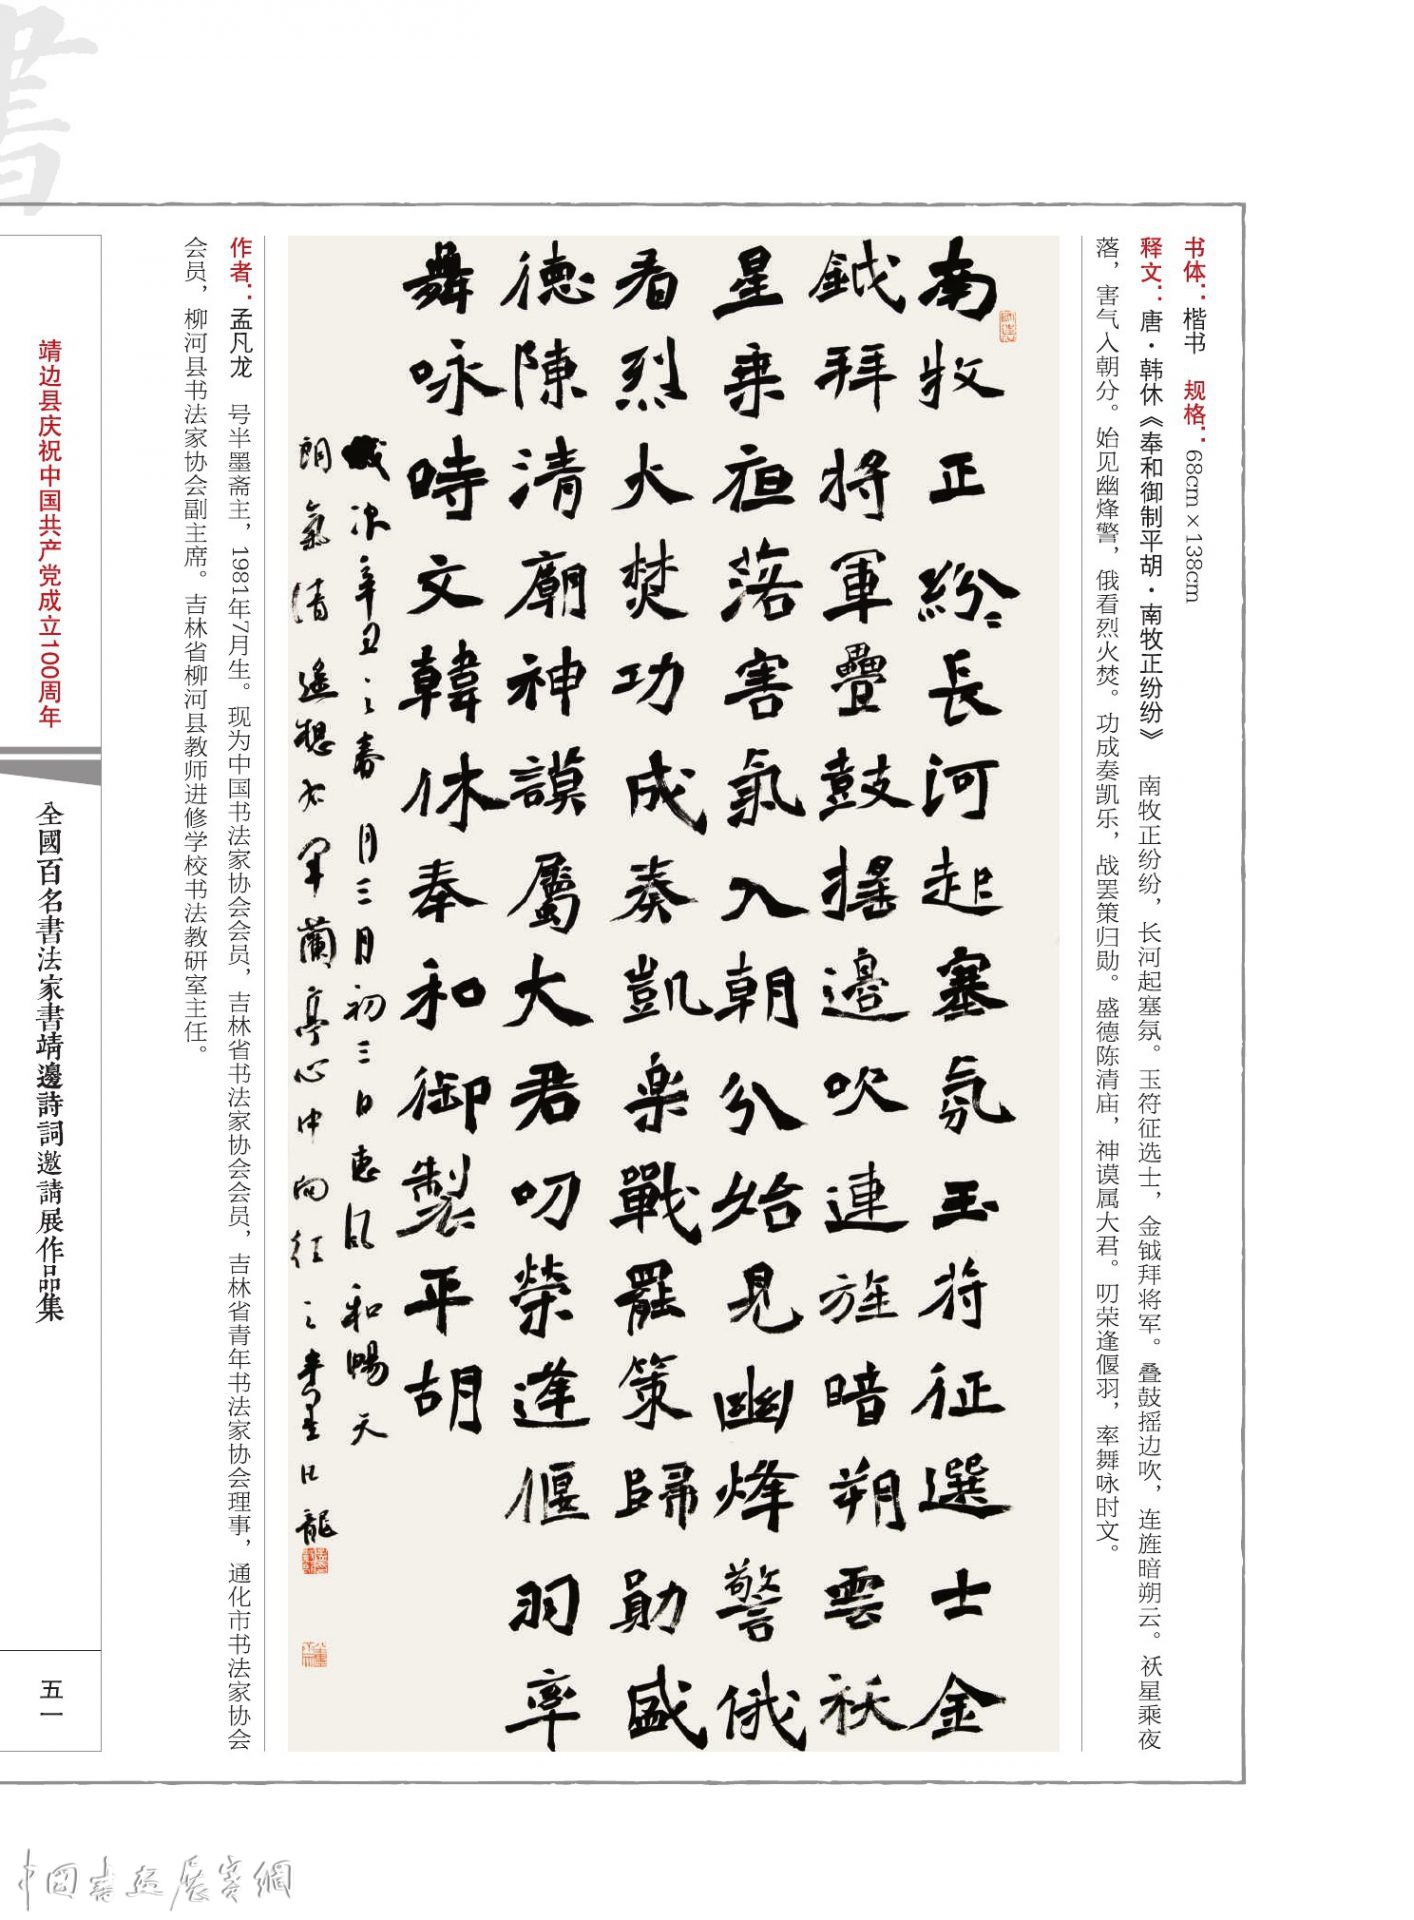 書
书体：楷书　规格：68cm×138cm
释文：唐·韩休《奉和御制平胡·南牧正纷纷》　南牧正纷纷，长河起塞氛。玉符征选士，金钺拜将军。叠鼓摇边吹，连旌暗朔云。祅星乘夜
落，害气入朝分。始见幽烽警，俄看烈火焚。功成奏凯乐，战罢策归勋。盛德陈清庙，神谟属大君。叨荣逢偃羽，率舞咏时文。
南牧正紛〻長河起塞氛玉符征選士金
鉞拜將軍疊鼓搖邊吹連旌暗朔雲祅
星乘夜落害氣入朝分始見幽烽警俄
看烈火焚功成奏凱樂戰罷策歸勛盛
德陳清廟神謨屬大君叨榮逢偃羽率
舞咏時文韓休奉和御製平胡
歲次辛丑之春月三月初三日惠風和暢天
朗氣清遙想右軍蘭亭心中向往之半墨凡龍
作者：孟凡龙　号半墨斋主，1981年7月生。现为中国书法家协会会员，吉林省书法家协会会员，吉林省青年书法家协会理事，通化市书法家协会
会员，柳河县书法家协会副主席。吉林省柳河县教师进修学校书法教研室主任。
靖边县庆祝中国共产党成立100周年
全國百名書法家書靖邊詩詞邀請展作品集
五一
中國書畫展賽網